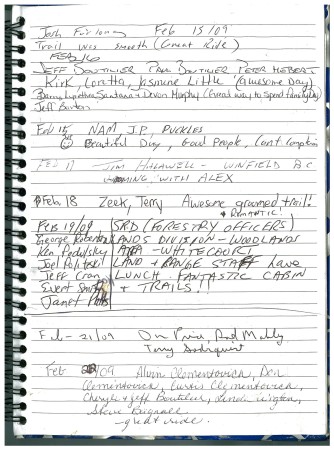 Josh Furlong Feb 15/09
Trail was smooth (Great Ride)
FEB 16
JEFF BOUTILIER PAUL BOUTILIER PETER HEBERT
Kirk, Loretta, Jasmine Little (Awesome Day)
Santana + Devon Murphy (Great way to spend Family Day)
Jeff Burton
Feb 15 NAM, J.P, PUCKLES
Beautiful Day, Good People, Can't complain
FEB 17 JIM HALAWELL - WINFIELD B.C
WITH ALEX
Feb 18 Zeek, Terry Awesome groomed trail!
+ ROMANTIC!
FEB 19/09 SRD (FORESTRY OFFICERS)
George Robertson LANDS DIVISION - WOODLANDS
Ken Podulsky - WHITECOURT
Joel LAND + RANGE STAFF have
Jeff Cran LUNCH, FANTASTIC CABIN
Smith + TRAILS!!
Janet
Feb - 21/09 Rod
Terry
Feb /09 Alvin Clementovich, Don
Clementovich, Curtis Clementovich,
Cheryle + Jeff Boutilier, Linda
Steve
- great ride.